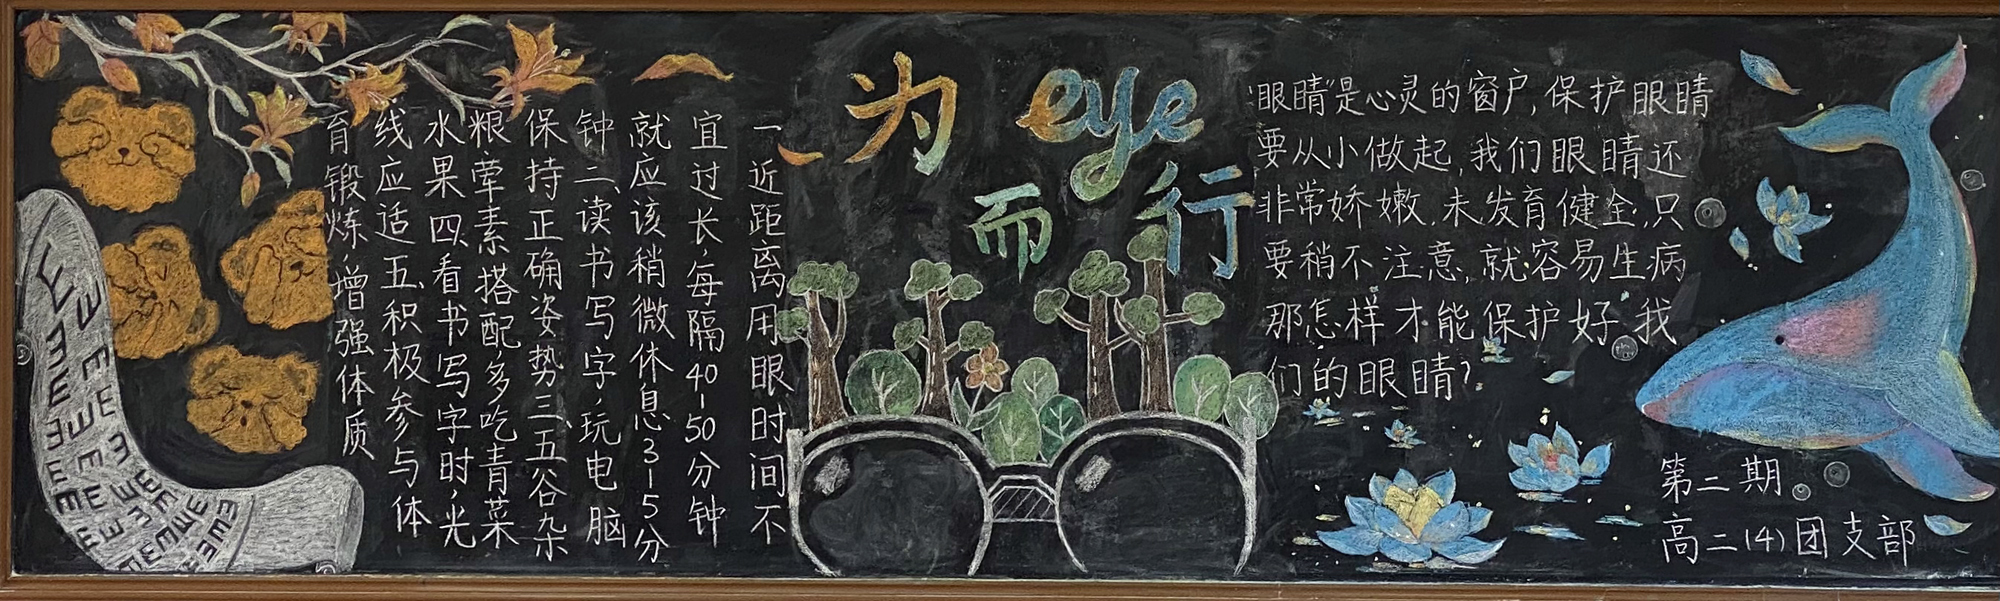 为eye
而行
"眼睛"是心灵的窗户,保护眼睛
要从小做起,我们眼睛还
非常娇嫩,未发育健全,只
要稍不注意,就容易生病
那怎样才能保护好我
们的眼睛?
一近距离用眼时间不
宜过长,每隔40-50分钟
就应该稍微休息3-5分
钟二、读书写字,玩电脑
保持正确姿势三、五谷杂
粮荤素搭配多吃青菜
水果四、看书写字时,光
线应适五、积极参与体
育锻炼,增强体质
第二期
高二(4)团支部